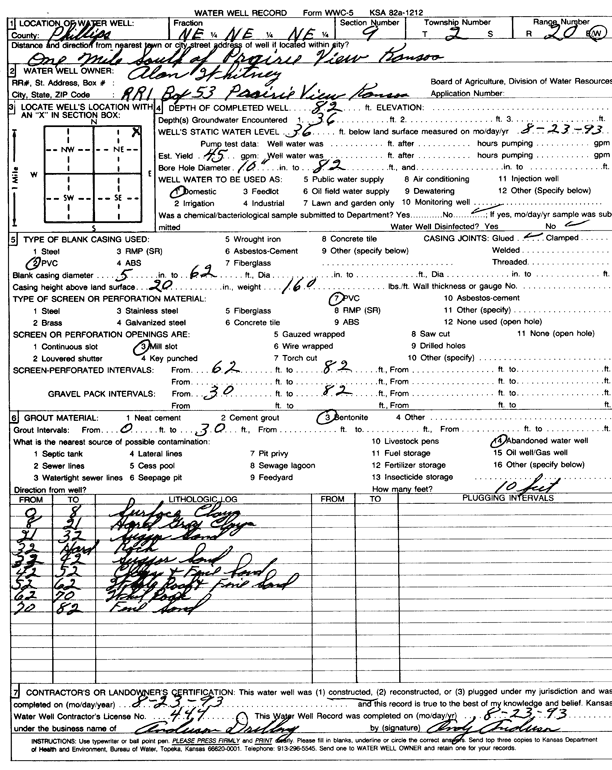 WATER WELL RECORD Form WWC-5 KSA 82a-1212
1 LOCATION OF WATER WELL: Fraction Section Number Township Number Range Number
County: Phillips NE ¼ NE ¼ NE ¼ 9 T 2 S R 20 E/W
Distance and direction from nearest town or city street address of well if located within city?
One Mile South of Prairie View Kansas
2 WATER WELL OWNER: Alan Whitney
RR#, St. Address, Box # : Board of Agriculture, Division of Water Resources
City, State, ZIP Code : RR1 Box 53 Prairie View Kansas Application Number:
3 LOCATE WELL'S LOCATION WITH AN "X" IN SECTION BOX:
N
NW NE
W E
SW SE
S
1 Mile
X
4 DEPTH OF COMPLETED WELL 82 ft. ELEVATION:
Depth(s) Groundwater Encountered 1 36 ft. 2. ft. 3. ft.
WELL'S STATIC WATER LEVEL 36 ft. below land surface measured on mo/day/yr 8-23-93
Pump test data: Well water was ft. after hours pumping gpm
Est. Yield 45 gpm: Well water was ft. after hours pumping gpm
Bore Hole Diameter 10 in. to 82 ft., and in. to ft.
WELL WATER TO BE USED AS: 5 Public water supply 8 Air conditioning 11 Injection well
1 Domestic 3 Feedlot 6 Oil field water supply 9 Dewatering 12 Other (Specify below)
2 Irrigation 4 Industrial 7 Lawn and garden only 10 Monitoring well
Was a chemical/bacteriological sample submitted to Department? Yes No ✓; If yes, mo/day/yr sample was submitted Water Well Disinfected? Yes No ✓
5 TYPE OF BLANK CASING USED: 5 Wrought iron 8 Concrete tile CASING JOINTS: Glued ✓ Clamped
1 Steel 3 RMP (SR) 6 Asbestos-Cement 9 Other (specify below) Welded
2 PVC 4 ABS 7 Fiberglass Threaded
Blank casing diameter 5 in. to 62 ft., Dia in. to ft., Dia in. to ft.
Casing height above land surface 20 in., weight 160 lbs./ft. Wall thickness or gauge No.
TYPE OF SCREEN OR PERFORATION MATERIAL: 7 PVC 10 Asbestos-cement
1 Steel 3 Stainless steel 5 Fiberglass 8 RMP (SR) 11 Other (specify)
2 Brass 4 Galvanized steel 6 Concrete tile 9 ABS 12 None used (open hole)
SCREEN OR PERFORATION OPENINGS ARE: 5 Gauzed wrapped 8 Saw cut 11 None (open hole)
1 Continuous slot 3 Mill slot 6 Wire wrapped 9 Drilled holes
2 Louvered shutter 4 Key punched 7 Torch cut 10 Other (specify)
SCREEN-PERFORATED INTERVALS: From 62 ft. to 82 ft., From ft. to ft.
From ft. to ft., From ft. to ft.
GRAVEL PACK INTERVALS: From 30 ft. to 82 ft., From ft. to ft.
From ft. to ft., From ft. to ft.
6 GROUT MATERIAL: 1 Neat cement 2 Cement grout 3 Bentonite 4 Other
Grout Intervals: From 0 ft. to 30 ft., From ft. to ft., From ft. to ft.
What is the nearest source of possible contamination: 10 Livestock pens 14 Abandoned water well
1 Septic tank 4 Lateral lines 7 Pit privy 11 Fuel storage 15 Oil well/Gas well
2 Sewer lines 5 Cess pool 8 Sewage lagoon 12 Fertilizer storage 16 Other (specify below)
3 Watertight sewer lines 6 Seepage pit 9 Feedyard 13 Insecticide storage
Direction from well? How many feet? 10 feet
FROM TO LITHOLOGIC LOG FROM TO PLUGGING INTERVALS
0 8 Surface Clay
8 21 Hard Gray Clay
21 32 Sand
32 Hard Rock
32 42 Sand
42 52 Clay + Fine Sand
52 62 White Rock + Fine Sand
62 70 White Rock
70 82 Fine Sand
7 CONTRACTOR'S OR LANDOWNER'S CERTIFICATION: This water well was (1) constructed, (2) reconstructed, or (3) plugged under my jurisdiction and was
completed on (mo/day/year) 8-23-93 and this record is true to the best of my knowledge and belief. Kansas
Water Well Contractor's License No. 444 This Water Well Record was completed on (mo/day/yr) 8-23-93
under the business name of Anderson Drilling by (signature) Andy Anderson
INSTRUCTIONS: Use typewriter or ball point pen. PLEASE PRESS FIRMLY and PRINT clearly. Please fill in blanks, underline or circle the correct answers. Send top three copies to Kansas Department
of Health and Environment, Bureau of Water, Topeka, Kansas 66620-0001. Telephone: 913-296-5545. Send one to WATER WELL OWNER and retain one for your records.